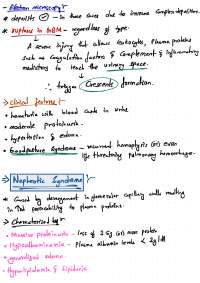 → Electron microscopy:-
* deposits ✓ - In those cases due to immune complex deposition.
* rupture in GBM - regardless of type.
↓
A severe injury that allows leukocytes, plasma proteins
such as coagulation factors & complement & inflammatory
mediators to reach the urinary space.
∴ trigger Crescentic formation.
→ clinical features:-
• hematuria with blood casts in urine
• moderate proteinuria.
• hypertension & edema.
• Goodpasture Syndrome - recurrent hemoptysis (or) even
life threatening pulmonary hemorrhage.
→ Nephrotic Syndrome:-
* Caused by derangement in glomerular capillary walls resulting
in ↑ed permeability to plasma proteins.
→ Characterized by:-
• Massive proteinuria - loss of 3.5g (or) more protein
• Hypoalbuminemia - plasma albumin levels < 3g/dl
• generalized edema.
• Hyperlipidemia & lipiduria.